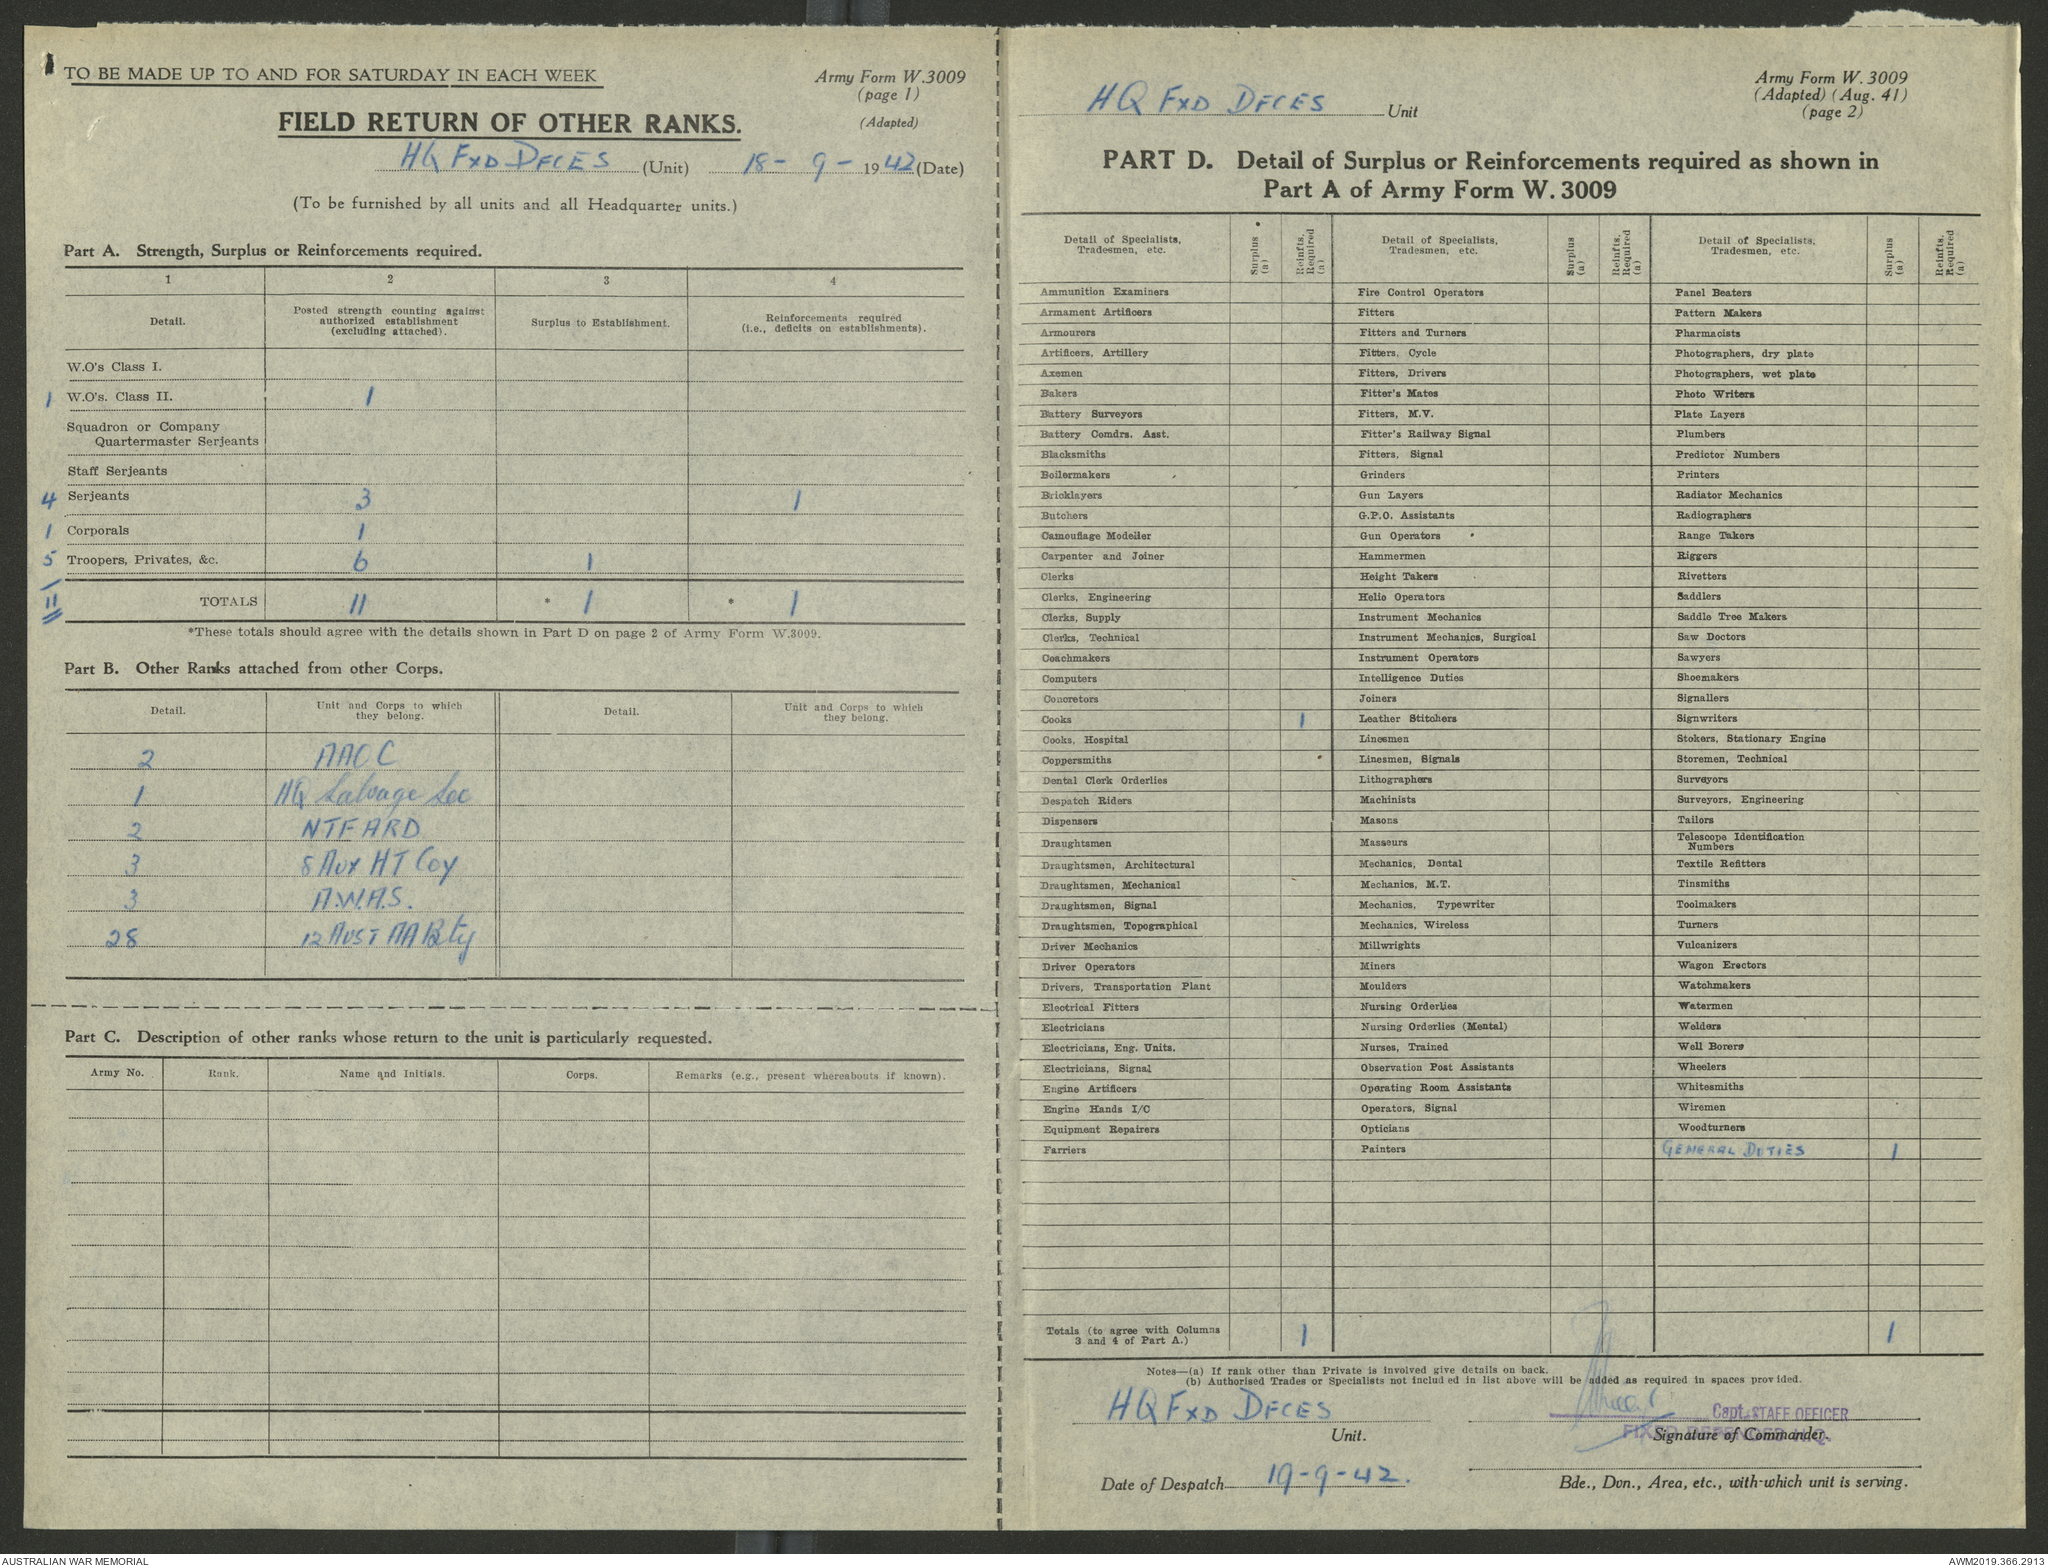 TO BE MADE UP TO AND FOR SATURDAY IN EACH WEEK
Army Form W.3009
(page 1)
(Adapted)
FIELD RETURN OF OTHER RANKS.
HQ FXD DFCES (Unit) 18-9-1942 (Date)
(To be furnished by all units and all Headquarter units.)
Part A. Strength, Surplus or Reinforcements required.
1 2 3 4
Detail. Posted strength counting against authorized establishment (excluding attached). Surplus to Establishment. Reinforcements required (i.e., deficits on establishments).
W.O's Class I.
1 W.O's. Class II. 1
Squadron or Company
Quartermaster Serjeants
Staff Serjeants
4 Serjeants 3 1
1 Corporals 1
5 Troopers, Privates, &c. 6 1
11 TOTALS 11 * 1 * 1
*These totals should agree with the details shown in Part D on page 2 of Army Form W.3009.
Part B. Other Ranks attached from other Corps.
Detail. Unit and Corps to which they belong. Detail. Unit and Corps to which they belong.
2 AAOC
1 HQ Salvage Sec
2 NTF ARD
3 8 AUX HT Coy
3 A.W.A.S.
28 12 AUST AA Bty
Part C. Description of other ranks whose return to the unit is particularly requested.
Army No. Rank. Name and Initials. Corps. Remarks (e.g., present whereabouts if known).
HQ FXD DFCES Unit
Army Form W. 3009
(Adapted) (Aug. 41)
(page 2)
PART D. Detail of Surplus or Reinforcements required as shown in
Part A of Army Form W. 3009
Detail of Specialists, Tradesmen, etc. Surplus (a) Reinfts. Required (a) Detail of Specialists, Tradesmen, etc. Surplus (a) Reinfts. Required (a) Detail of Specialists, Tradesmen, etc. Surplus (a) Reinfts. Required (a)
Ammunition Examiners Fire Control Operators Panel Beaters
Armament Artificers Fitters Pattern Makers
Armourers Fitters and Turners Pharmacists
Artificers, Artillery Fitters, Cycle Photographers, dry plate
Axemen Fitters, Drivers Photographers, wet plate
Bakers Fitter's Mates Photo Writers
Battery Surveyors Fitters, M.V. Plate Layers
Battery Comdrs. Asst. Fitter's Railway Signal Plumbers
Blacksmiths Fitters, Signal Predictor Numbers
Boilermakers Grinders Printers
Bricklayers Gun Layers Radiator Mechanics
Butchers G.P.O. Assistants Radiographers
Camouflage Modeller Gun Operators Range Takers
Carpenter and Joiner Hammermen Riggers
Clerks Height Takers Rivetters
Clerks, Engineering Helio Operators Saddlers
Clerks, Supply Instrument Mechanics Saddle Tree Makers
Clerks, Technical Instrument Mechanics, Surgical Saw Doctors
Coachmakers Instrument Operators Sawyers
Computers Intelligence Duties Shoemakers
Concretors Joiners Signallers
Cooks 1 Leather Stitchers Signwriters
Cooks, Hospital Linesmen Stokers, Stationary Engine
Coppersmiths Linesmen, Signals Storemen, Technical
Dental Clerk Orderlies Lithographers Surveyors
Despatch Riders Machinists Surveyors, Engineering
Dispensers Masons Tailors
Draughtsmen Masseurs Telescope Identification Numbers
Draughtsmen, Architectural Mechanics, Dental Textile Refitters
Draughtsmen, Mechanical Mechanics, M.T. Tinsmiths
Draughtsmen, Signal Mechanics, Typewriter Toolmakers
Draughtsmen, Topographical Mechanics, Wireless Turners
Driver Mechanics Millwrights Vulcanizers
Driver Operators Miners Wagon Erectors
Drivers, Transportation Plant Moulders Watchmakers
Electrical Fitters Nursing Orderlies Watermen
Electricians Nursing Orderlies (Mental) Welders
Electricians, Eng. Units. Nurses, Trained Well Borers
Electricians, Signal Observation Post Assistants Wheelers
Engine Artificers Operating Room Assistants Whitesmiths
Engine Hands I/C Operators, Signal Wiremen
Equipment Repairers Opticians Woodturners
Farriers Painters GENERAL DUTIES 1
Totals (to agree with Columns 3 and 4 of Part A.) 1 1
Notes—(a) If rank other than Private is involved give details on back.
(b) Authorised Trades or Specialists not included in list above will be added as required in spaces provided.
HQ FXD DFCES
Capt. STAFF OFFICER
Unit. Signature of Commander.
FIXED DEFENCES H.Q.
Date of Despatch 19-9-42.
Bde., Dvn., Area, etc., with which unit is serving.
AUSTRALIAN WAR MEMORIAL
AWM2019.366.2913